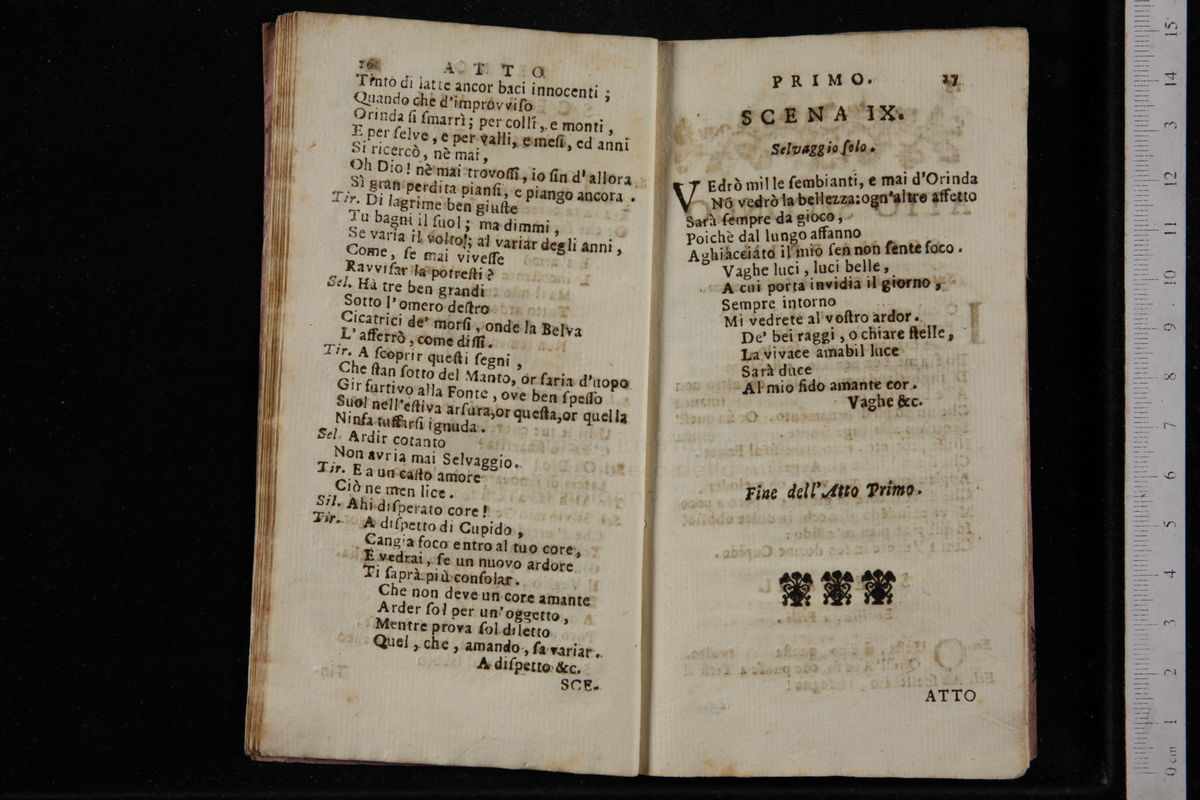 16
ATTO
Tinto di latte ancor baci innocenti ;
Quando che d'improvviſo
Orinda ſi ſmarrì ; per colli, e monti ,
E per ſelve , e per valli, e meſi , ed anni
Si ricercò, nè mai ,
Oh Dio ! nè mai trovoſſi, io ſin d'allora
Sì gran perdita pianſi, e piango ancora .
Tir. Di lagrime ben giuſte
Tu bagni il ſuol ; ma dimmi ,
Se varia il volto!; al variar degli anni ,
Come, ſe mai viveſſe
Ravviſar la potreſti ?
Sel. Hà tre ben grandi
Sotto l'omero deſtro
Cicatrici de' morſi , onde la Belva
L'afferrò , come diſſi .
Tir. A ſcoprir queſti ſegni ,
Che ſtan ſotto del Manto, or ſaria d'uopo
Gir furtivo alla Fonte , ove ben ſpeſſo
Suol nell'eſtiva arſura,or queſta,or quella
Ninfa tuffarſi ignuda .
Sel. Ardir cotanto
Non avria mai Selvaggio.
Tir. E a un caſto amore
Ciò ne men lice .
Sil. Ahi diſperato core !
Tir. A diſpetto di Cupido ,
Cangia foco entro al tuo core,
E vedrai, ſe un nuovo ardore
Ti ſaprà più conſolar .
Che non deve un core amante
Arder ſol per un'oggetto ,
Mentre prova ſol diletto
Quel , che , amando , ſa variar.
A diſpetto &c.
SCE-
PRIMO.
17
SCENA IX.
Selvaggio ſolo .
VEdrò mille ſembianti, e mai d'Orinda
Nõ vedrò la bellezza: ogn'altro affetto
Sarà ſempre da gioco ,
Poichè dal lungo affanno
Aghiacciato il mio ſen non ſente foco .
Vaghe luci , luci belle ,
A cui porta invidia il giorno ,
Sempre intorno
Mi vedrete al voſtro ardor .
De' bei raggi , o chiare ſtelle,
La vivace amabil luce
Sarà duce
Al mio fido amante cor .
Vaghe &c.
Fine dell'Atto Primo.
ATTO
0 cm 1 2 3 4 5 6 7 8 9 10 11 12 13 14 15